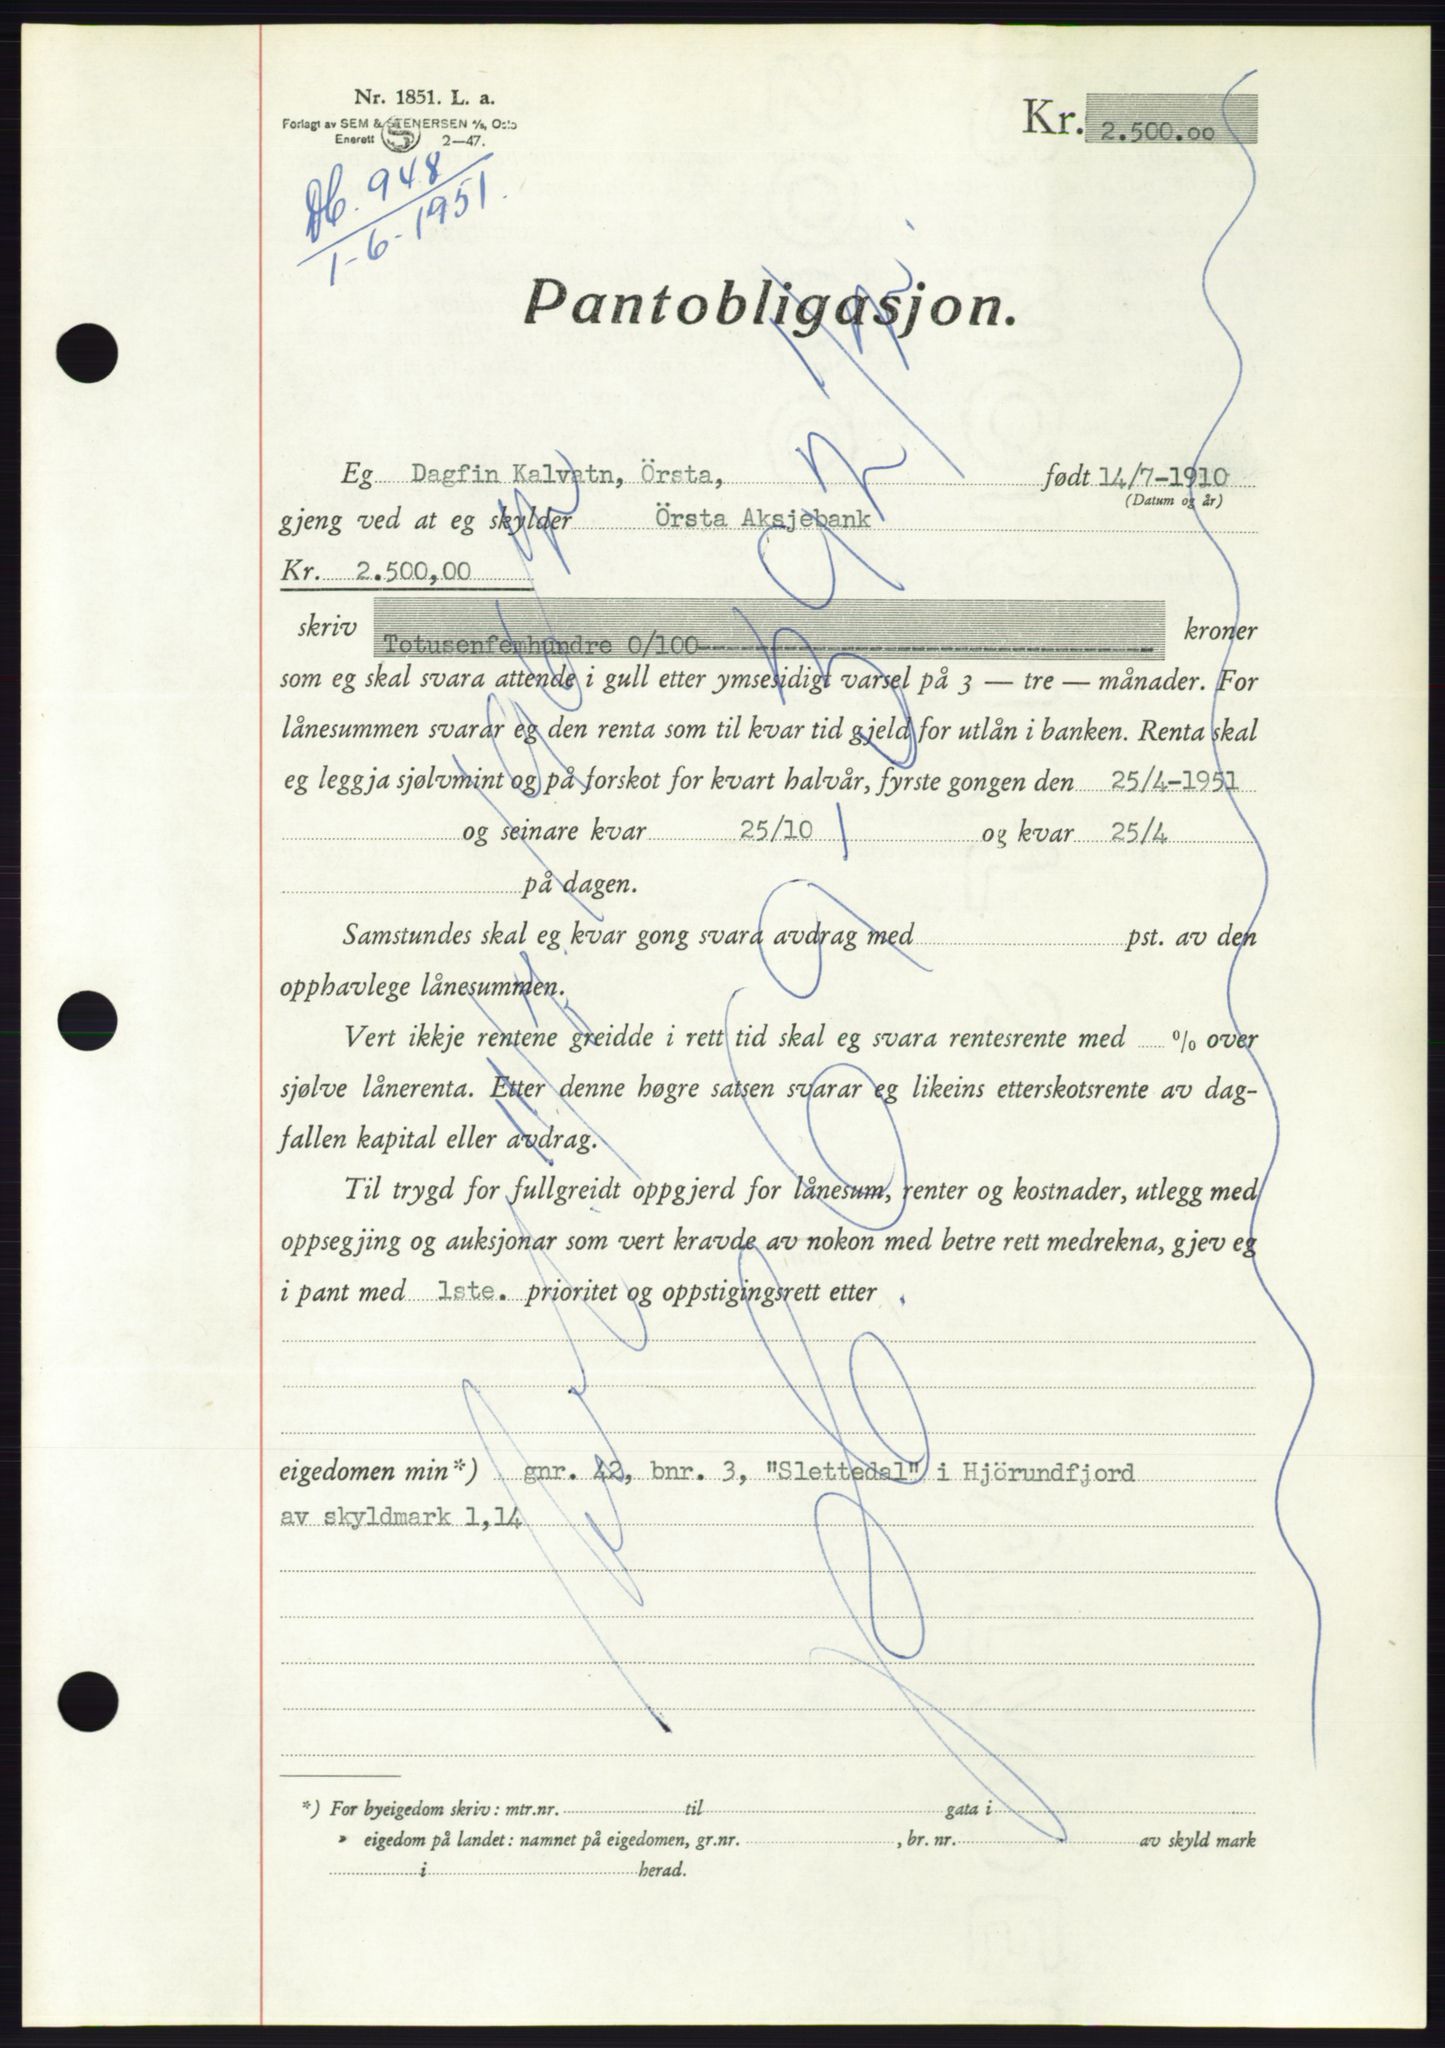 Nr. 1851. L. a.
Forlagt av SEM & STENERSEN A/S, Oslo
Enerett 2—47.
Kr. 2.500.00
Db. 948
1-6-1951.
Pantobligasjon.
Eg Dagfin Kalvatn, Örsta, født 14/7-1910
(Datum og år)
gjeng ved at eg skylder Örsta Aksjebank
Kr. 2.500,00
skriv Totusenfemhundre 0/100 kroner
som eg skal svara attende i gull etter ymsesidigt varsel på 3 — tre — månader. For
lånesummen svarar eg den renta som til kvar tid gjeld for utlån i banken. Renta skal
eg leggja sjølvmint og på forskot for kvart halvår, fyrste gongen den 25/4-1951
og seinare kvar 25/10 og kvar 25/4
på dagen.
Samstundes skal eg kvar gong svara avdrag med pst. av den
opphavlege lånesummen.
Vert ikkje rentene greidde i rett tid skal eg svara rentesrente med % over
sjølve lånerenta. Etter denne høgre satsen svarar eg likeins etterskotsrente av dag-
fallen kapital eller avdrag.
Til trygd for fullgreidt oppgjerd for lånesum, renter og kostnader, utlegg med
oppsegjing og auksjonar som vert kravde av nokon med betre rett medrekna, gjev eg
i pant med 1ste. prioritet og oppstigingsrett etter
eigedomen min*) gnr. 42, bnr. 3, "Slettedal" i Hjörundfjord
av skyldmark 1,14
*) For byeigedom skriv: mtr.nr. til gata i
» eigedom på landet: namnet på eigedomen, gr.nr. , br. nr. av skyld mark
i herad.